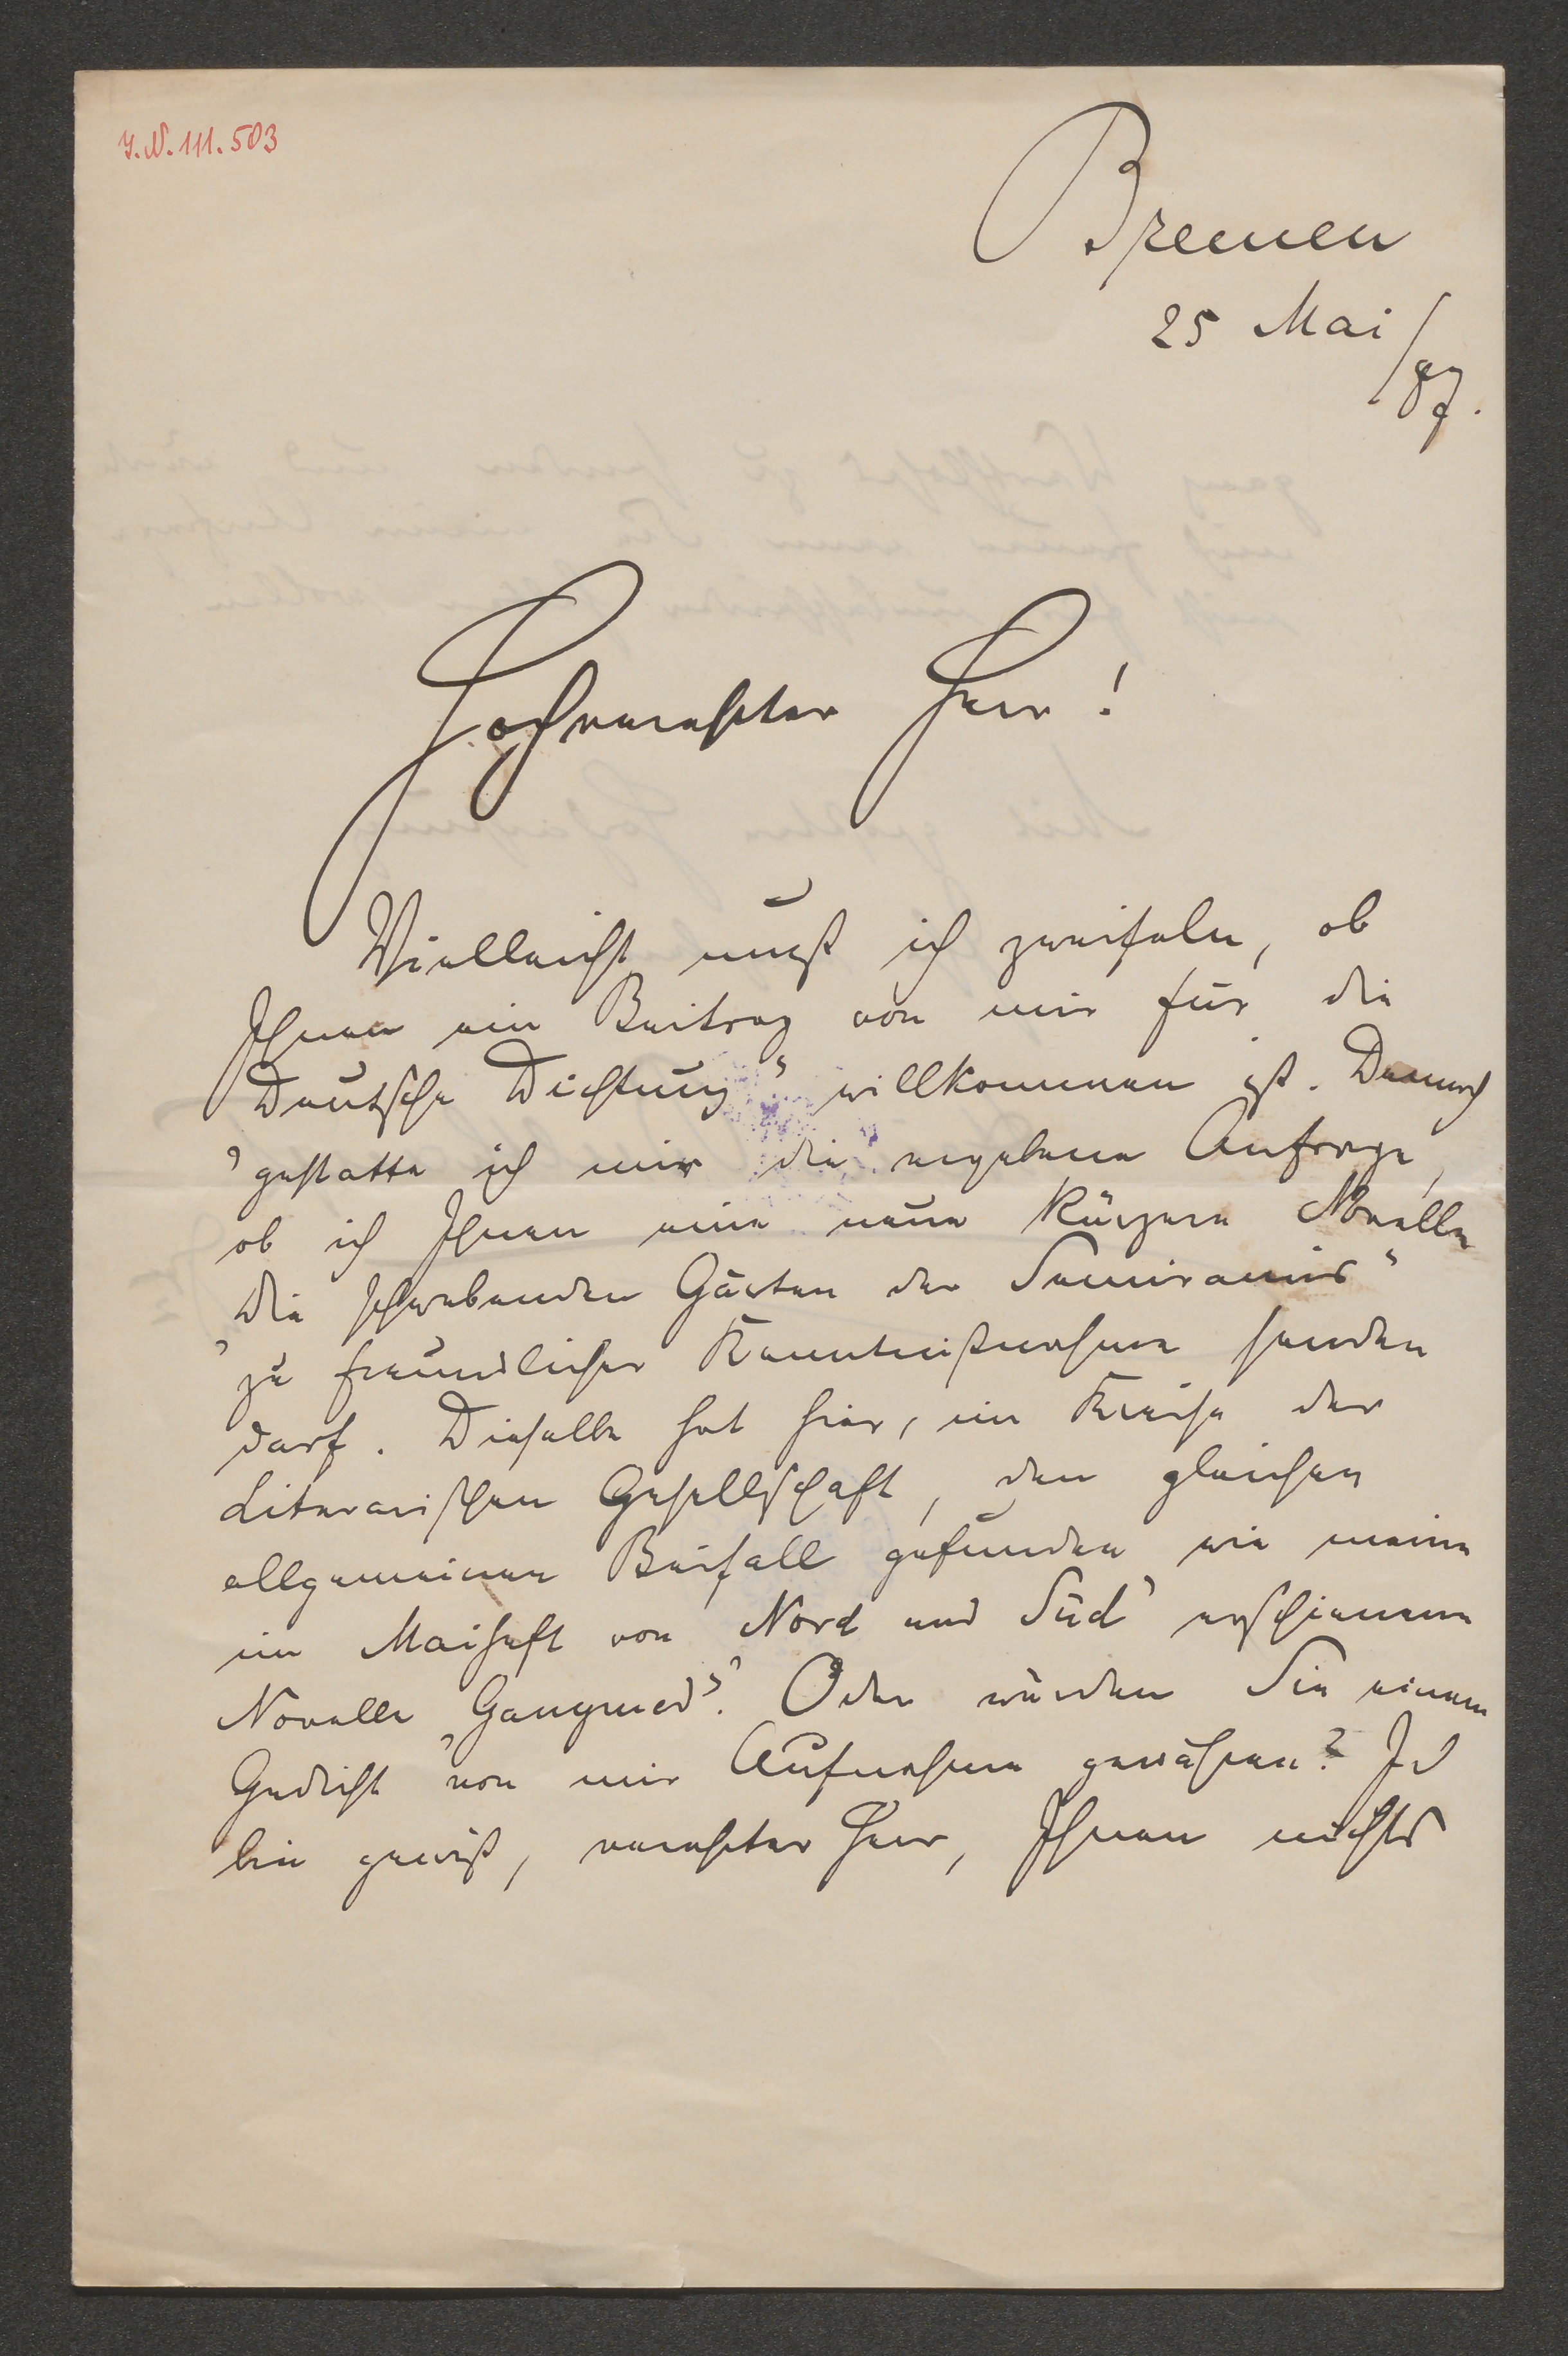 J.N. 111.503
Bremen
25 Mai /87.
Hochverehrter Herr!
Vielleicht muß ich zweifeln, ob
Ihnen ein Beitrag von mir für die
„Deutsche Dichtung“ willkommen ist. Dennoch
gestatte ich mir die ergebene Anfrage,
ob ich Ihnen eine neue kürzere Novelle
„Die schwebenden Gärten der Semiramis“
zu freundlicher Kenntnißnahme senden
darf. Dieselbe hat hier, im Kreise der
Literarischen Gesellschaft, den gleichen
allgemeinen Beifall gefunden wie meine
im Maiheft von „Nord und Süd“ erschienene
Novelle „Ganymed“. Oder würden Sie einem
Gedicht von mir Aufnahme gewähren? Ich
bin gewiß, verehrter Herr, Ihnen nichts